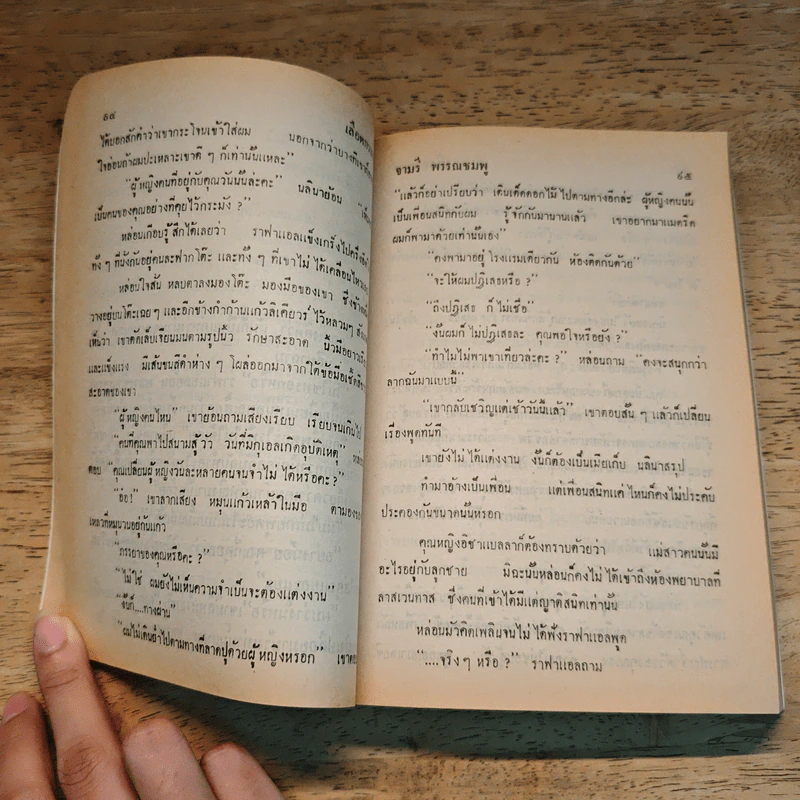 ๑๔
เลือด
ได้บอกสักคำว่าเขากระโจนเข้าใส่ผม นอกจากว่าบางทีเขา
ใจอ่อนถ้าผมปะเหลาะเขาดี ๆ ก็เท่านั้นแหละ”
“ผู้หญิงคนที่อยู่กับคุณวันนั้นล่ะคะ” นลินาย้อน
เป็นคนของคุณอย่างที่คุยไว้กระมัง ?”
หล่อนเกือบรู้สึกได้เลยว่า ราฟาแอลแข็งเกร็งไปครึ่ง
ทั้ง ๆ ที่นั่งกันอยู่คนละฟากโต๊ะ และทั้ง ๆ ที่เขาไม่ได้เคลื่อนไหว
หล่อนใจสั่น หลบตาลงมองโต๊ะ มองมือของเขา ซึ่งข้าง
วางอยู่บนโต๊ะเฉย ๆ และอีกข้างกำก้านแก้วลิเคียวร์ไว้หลวมๆ
เห็นว่า เขาตัดเล็บเรียบมนตามรูปนิ้ว รักษาสะอาด นิ้วมือยาว
และแข็งแรง มีเส้นขนสีดำห่าง ๆ โผล่ออกมาจากใต้ข้อมือเชิ้ต
สะอาดของเขา
“ผู้หญิงคนไหน” เขาย้อนถามเสียงเรียบ เรียบจนเกินไป
“คนที่คุณพาไปสนามสู้วัว วันที่มิกุเอลเกิดอุบัติเหตุ”
ตอบ “คุณเปลี่ยนผู้หญิงวันละหลายคนจนจำไม่ได้หรือคะ ?”
“อ๋อ!” เขาลากเสียง หมุนแก้วเหล้าในมือ ตามอง
เหลวที่หมุนวนอยู่ก้นแก้ว
“ภรรยาของคุณหรือคะ ?”
“ไม่ใช่ ผมยังไม่เห็นความจำเป็นจะต้องแต่งงาน”
“งั้นก็....ทางผ่าน”
“ผมไม่เดินย่ำไปตามทางที่ลาดปูด้วยผู้หญิงหรอก” เขา
จามรี พรรณชมพู
๑๕
“แล้วก็อย่าเปรียบว่า เดินเด็ดดอกไม้ไปตามทางอีกล่ะ ผู้หญิงคนนั้น
เป็นเพื่อนสนิทกับผม รู้จักกันมานานแล้ว เขาอยากมาแมดริด
ผมก็พามาด้วยเท่านั้นเอง”
“คงพามาอยู่โรงแรมเดียวกัน ห้องติดกันด้วย”
“จะให้ผมปฏิเสธหรือ ?”
“ถึงปฏิเสธ ก็ไม่เชื่อ”
“งั้นผมก็ไม่ปฏิเสธละ คุณพอใจหรือยัง ?”
“ทำไมไม่พาเขาเที่ยวล่ะคะ ?” หล่อนถาม “คงจะสนุกกว่า
ลากฉันมาแบบนี้”
“เขากลับเซวิญแต่เช้าวันนี้แล้ว” เขาตอบสั้น ๆ แล้วก็เปลี่ยน
เรื่องพูดทันที
เขายังไม่ได้แต่งงาน งั้นก็ต้องเป็นเมียเก็บ นลินาสรุป
ทำมาอ้างเป็นเพื่อน แต่เพื่อนสนิทแค่ไหนก็คงไม่ประคับ
ประคองกันขนาดนั้นหรอก
คุณหญิงอิซาแบลลาก็ต้องทราบด้วยว่า แม่สาวคนนั้นมี
อะไรอยู่กับลูกชาย มิฉะนั้นหล่อนก็คงไม่ได้เข้าถึงห้องพยาบาลที่
ลาสเวนทาส ซึ่งคนที่เข้าได้มีแต่ญาติสนิทเท่านั้น
หล่อนมัวคิดเพลินจนไม่ได้ฟังราฟาแอลพูด
“....จริงๆ หรือ ?” ราฟาแอลถาม